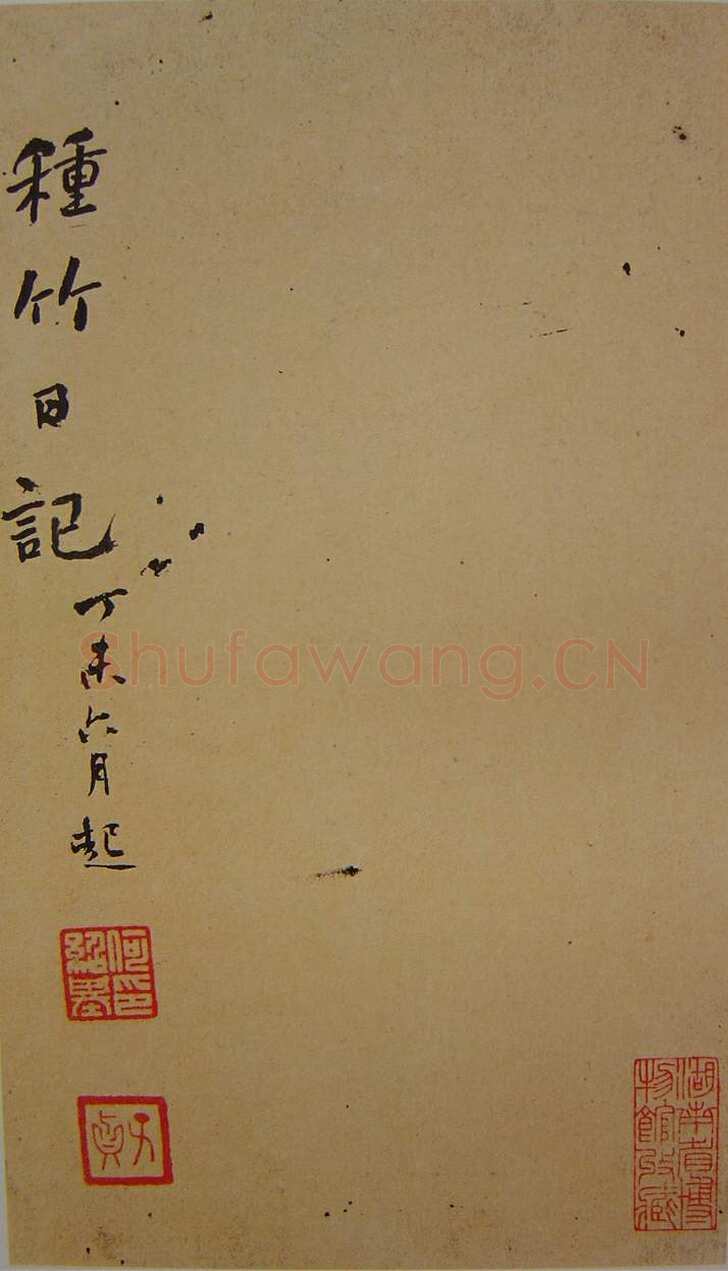 種竹日記
丁未六月起
Shufawang.CN
何印
紹基
子貞
湖南省博
物館收藏